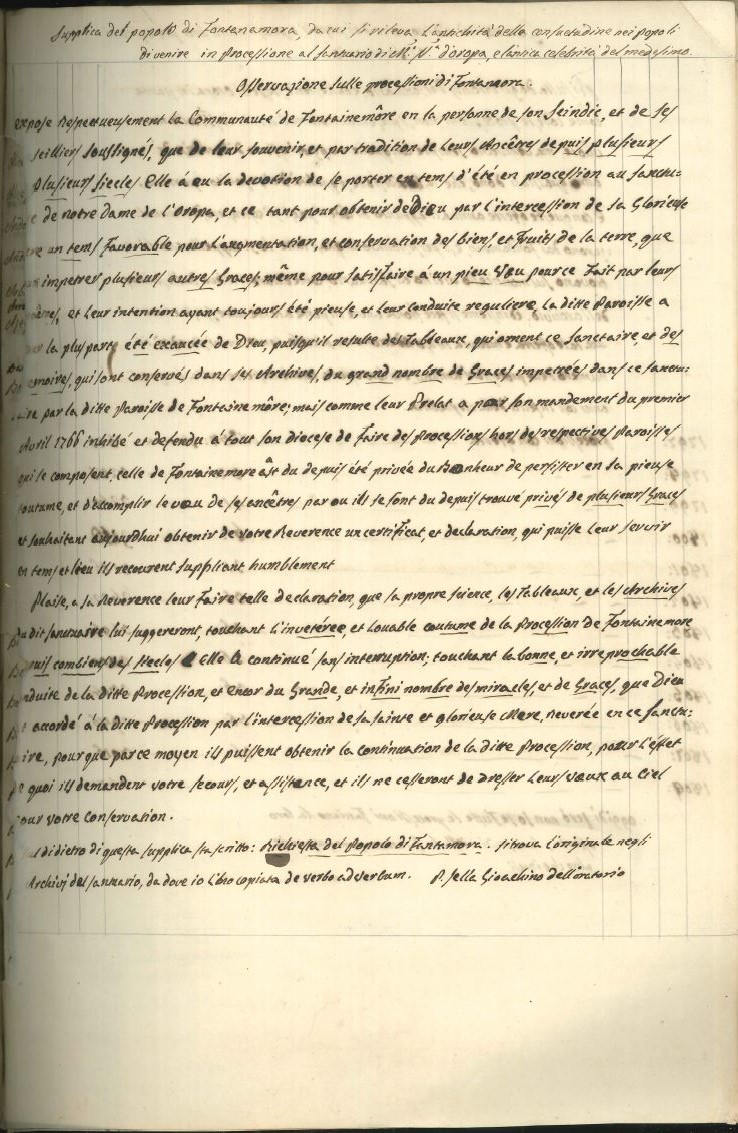 Supplica del popolo di Fontanamora, da cui si rileva l'antichità della consuetudine nei Popoli
di venire in Processione al santuario di N.ª S.ª d'oropa, e l'antica celebrità del medesimo.
Osservazione sulle processioni di Fontamora.
expose Respectueusement La Communauté de Fontainemôre en la personne de son Seindic, et de ses
seilliers soussignés, que de leur souvenir, et par tradition de Leurs Ancêtres depuis plusieurs
plusieurs siecles Elle á eu la devotion de se porter en tems d'été en procession au sanctu=
e de notre Dame de l'Oropa, et ce tant pour obtenir de Dieu par l'intercession de sa Glorieuse
un tems Favorable pour l'augmentation, et conservation des biens, et Fruits de la terre, que
impetrer plusieurs autres Graces, même pour satisfaire á un pieu Vœu pour ce Fait par leurs
et Leur intention ayant toujours été pieuse, et leur conduite reguliere, la ditte Paroisse a
la plus part été exaucée de Dieu, puisqu'il resulte des Tableaux, qui ornent ce sanctaire, et des
emoires, qui sont conservés dans ses Archives, du grand nombre de Graces impetrées dans ce sanctu=
aire par la ditte Paroisse de Fontainemôre; mais comme leur Prelat a par son mandement du premier
Avril 1766 inhibé et defendu á tout son diocese de Faire des Processions hors des respectives Paroisses
qui le composent, celle de Fontainemore du depuis été privée du Bonheur de persister en sa pieuse
coutume, et d'accomplir le vœu de ses ancêtres par ou ils se sont du depuis trouvé privés de plusieurs Graces
et souhaitant aujourdhui obtenir de votre Reverence un certificat, et declaration, qui puisse Leur servir
en tems et lieu ils recourent suppliant humblement
Plaise, a sa Reverence leur Faire telle declaration, que sa propre science, les Tableaux, et les Archives
du dit sanctuaire lui suggereront, touchant L'invetérée, et Louable coutume de la Procession de Fontainemore
uis combien des siecles Elle a continué sans interruption; touchant la bonne, et irreprochable
onduite de la Ditte Procession, et encor du Grande, et infini nombre des miracles, et de Graces, que Dieu
accordé á la ditte Procession par l'intercession de sa sainte et glorieuse Mere, Reverée en ce sanctu=
aire, pour que par ce moyen ils puissent obtenir la continuation de la Ditte Procession, pour l'éffet
de quoi ils demandent votre secours, et assistence, et ils ne cesseront de Dresser Leurs vœux au Ciel
pour votre Conservation.
al di dietro di questa supplica sta scritto: Richiesta del Popolo di Fontamora. si trova l'originale negli
Archivj del santuario, da dove io l'ho copiata de verbo ad verbum. P. Sella Gioachino dell'oratorio